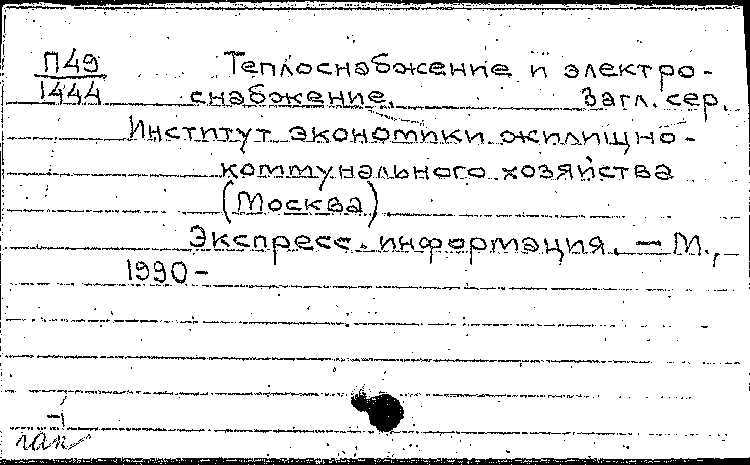 П49
1444
Теплоснабжение и электро-
снабжение. Загл. сер.
Институт экономики жилищно-
коммунального хозяйства
(Москва)
Экспресс-информация. — М.,
1990-